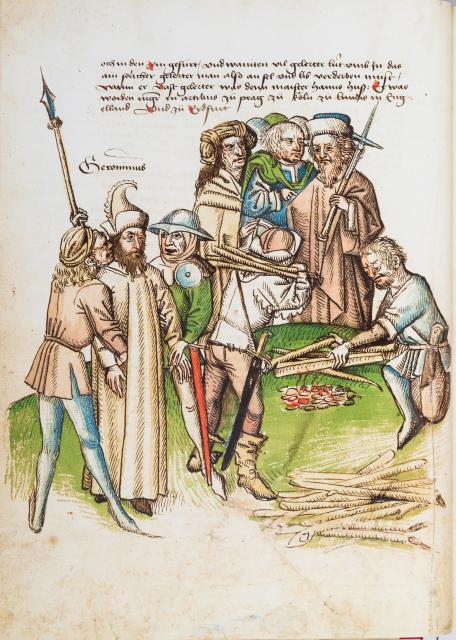 och in den Rin gefürt / vnd wainten vil gelerter lüt vmb in das
ain sölicher gelerter man also an sel vnd lib verderben müst /
wann er vast gelerter was denn maister Hanns Huß Er was
worden mgr in artibus zü prag zü köln zü in Eng
elland vnd zü Erdfurt
Geronimus